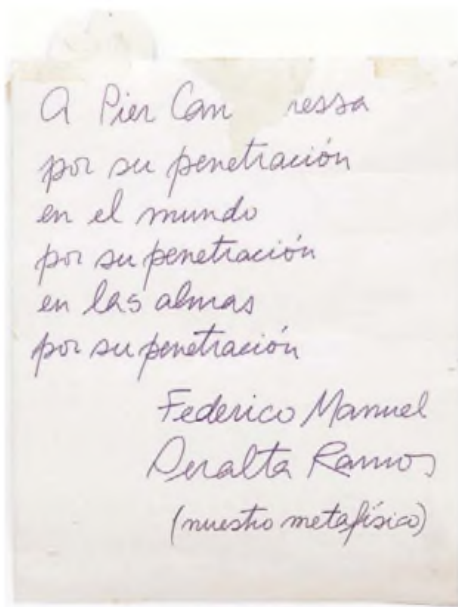 A Pier Can ressa
por su penetración
en el mundo
por su penetración
en las almas
por su penetración
Federico Manuel
Peralta Ramos
(nuestro metafísico)